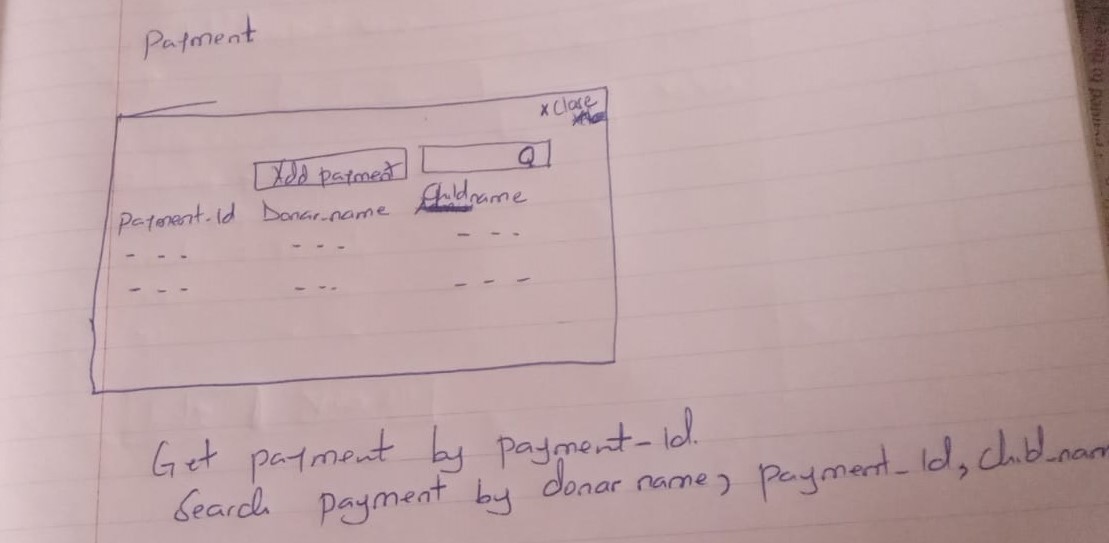 Payment
x Close
Add payment
Payment-Id Donar-name Child name
Get payment by payment-Id.
Search payment by donar name, payment-Id, child-nam